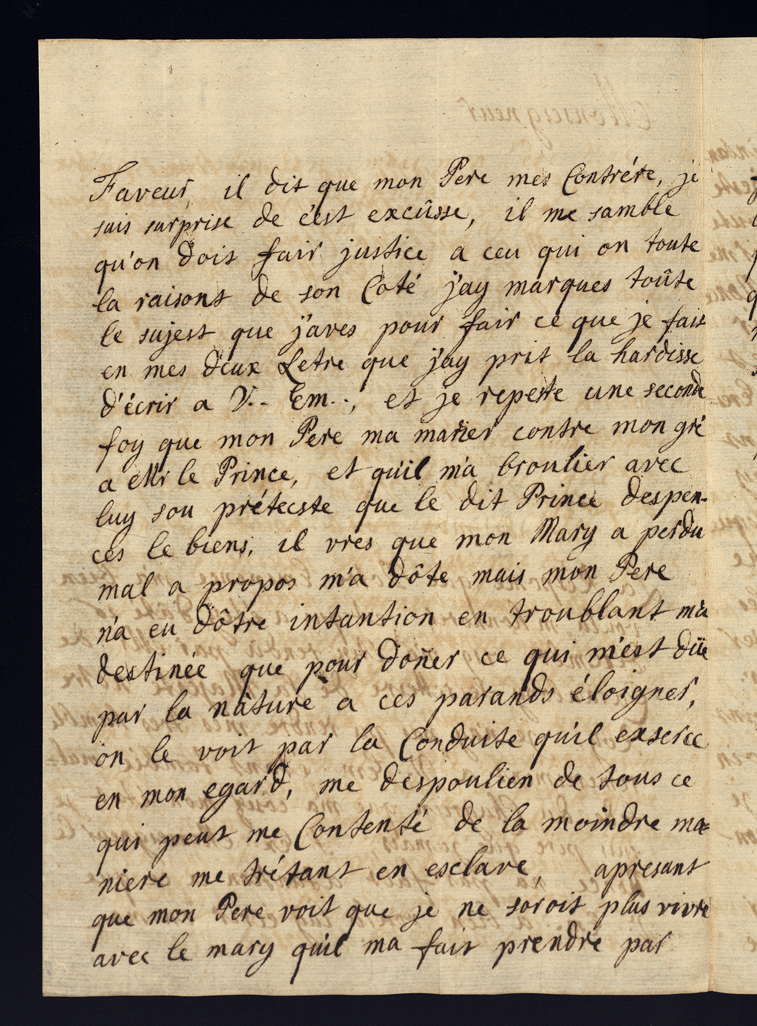 Faveur, il dit que mon Pere mes Contrére, je
suis surprise de cest excûsse, il me samble
qu'on dois fair justice a ceu qui on toute
la raisons de son Coté j'ay marques toûte
le sujest que j'aves pour fair ce que je fait
en mes deux Letre que j'ay prit la hardisse
d'écrir a V.. Em.., et je repette une seconde
foy que mon Pere ma marier contre mon gré
a le Prince, et quil m'a broulier avec
luy sou prétecste que le dit Prince despen-
ces le biens, il vres que mon Mary a perdu
mal a propos m'a dôte mais mon Pere
n'a eu dôtre intantion en troublant m'a
destinée que pour doñer ce qui m'est düe
par la nâture a ces parands éloigner,
on le voit par la Conduite qu'il exserce
en mon egard, me despoulien de tous ce
qui peut me Contenté de la moindre ma=
niere me trétant en esclave, apresant
que mon Pere voit que je ne sorois plus vivre
avec le mary quil ma fait prendre par
Monseigneur